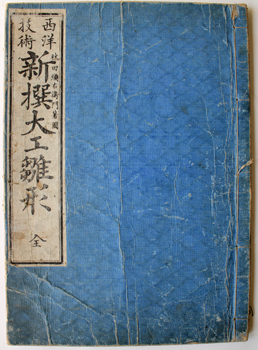 西洋
技術
新撰大工雛形
全